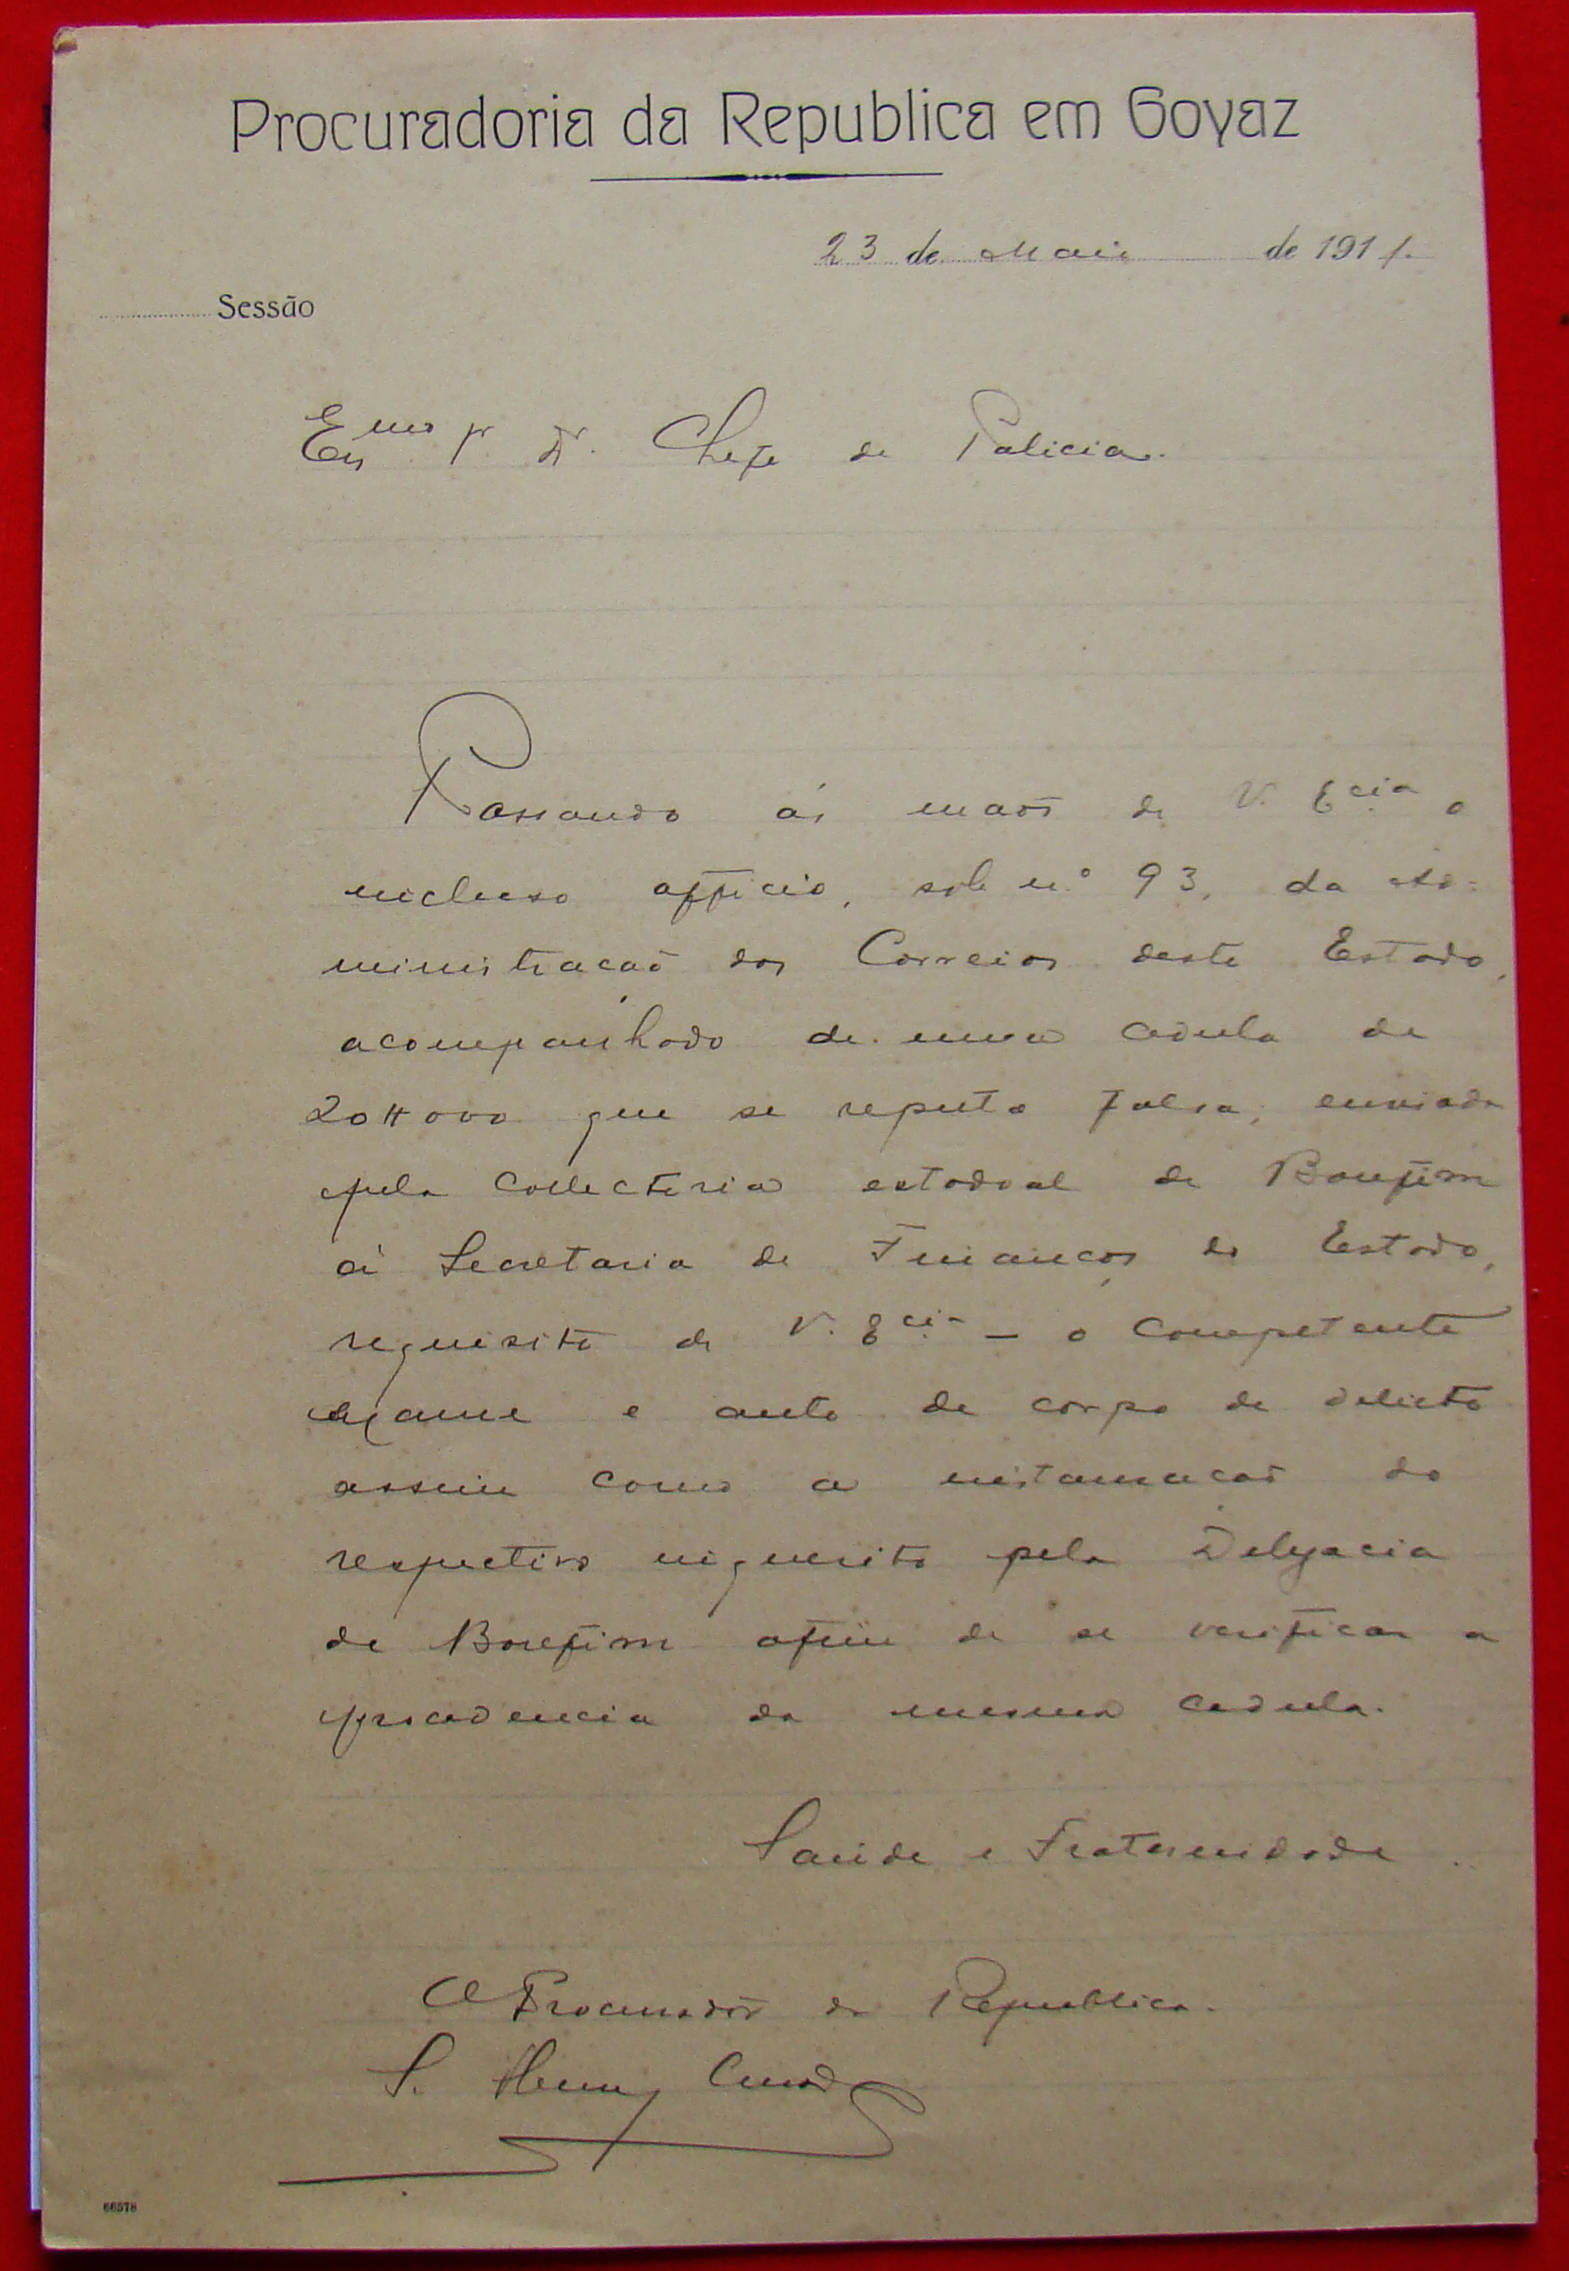 Procuradoria da Republica em Goyaz
23 de Maio de 191
Sessão
Exmo Sr. Dr. Chefe de Policia.
Passando ás maõs de V. Ecia o
incluso officio, sob n.º 93, da Ad=
ministraçaõ dos Correios deste Estado,
acompanhado de uma cedula de
20#000 que se reputa falsa, enviada
pela Collectoria estadoal de Bonfim
á Secretaria de Finanças do Estado,
requisito de V. Ecia — o competente
exame e auto de corpo de delicto
assim como a instauracaõ do
respectivo inquerito pela Delegacia
de Bonfim afim de se verificar a
procedencia da mesma cedula.
Saúde e Fraternidade
O Procurador da Republica.
S. Curado
66578